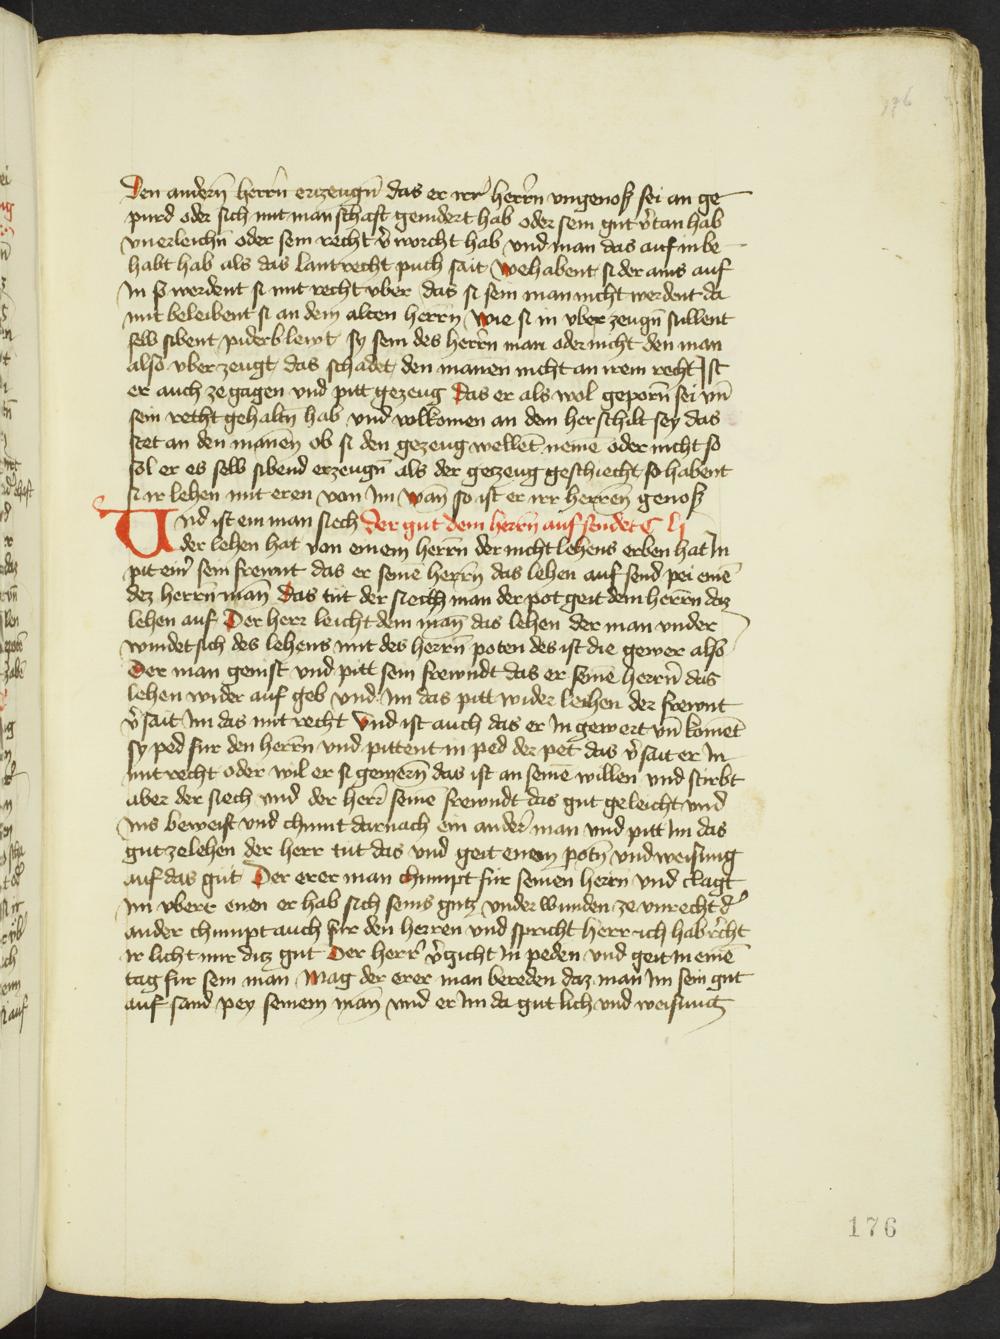 176
Den andern̄ herrn̄ erzeugn̄ das er irr herrn̄ vngenoß sei an ge
purd oder sich mit manschaft genidert hab oder sein gut v̄tan hab
vnerleichn̄ oder sein recht v̄worcht hab vnd man das auf in be
habt hab als das lantrecht puch sait wehabent si der ains auf
In so werdent si mit recht vber das si sein man nicht werdent da
mit beleibent si an dem alten herrn̄ wie si in vber zeugn̄ sullent
selb sibent piderb lewt sy sein des herrn̄ man oder nicht den man
also vber zeugt das schadet den manen nicht an irem recht Ist
er auch ze gagen vnd pitt gezeug Das er als wol geporn̄ sei vn̄
sein recht gehaltn̄ hab vnd volkomen an dem herschilt sey das
stet an den manen̄ ob si den gezeug wellet̄ neme oder nicht so
sol er es selb sibend erzeugn̄ als der gezeug geschiecht so habent
si ir lehen mit eren von im wan̄ so ist er irr herren̄ genoß
Vnd ist ein man siech der gut dem herrn̄ auf sendet C lj
der lehen hat von einem herrn̄ der nicht lehens erben hat In
pit ein̄ sein frewnt das er seinē herrn̄ das lehen auf send pei einē
dez herrn̄ man̄ Das tut der siech man der pot geit dem herrn̄ daz
lehen auf Der herr leicht dem man̄ das lehen der man vnder
windet sich des lehens mit des herrn̄ poten des ist die gewer also
Der man genist vnd pitt sein frewndt das er seinē herrn̄ das
lehen wider auf geb vnd im das pitt wider leihen der frewnt
v̄sait im das mit recht Vnd ist auch das er In gewert vn̄ komēt
sy ped fur den herrn̄ vnd pittent in ped der pet das v̄sait er In
mit recht oder wil er si gewern̄ das ist an seinē willen vnd stirbt
aber der siech vnd der herr seinē frewndt das gut geleicht vnd
ins beweist vnd chumt darnach ein ander man vnd pitt im das
gut ze lehen der herr tut das vnd geit enem potn̄ vnd weisung
auf das gut Der erer man chumpt fur seinen herrn̄ vnd clagt
im vber enen er hab sich seins gutz vnder wunden ze vnrecht d̄
ander chumpt auch fur den herren vnd spricht herr ich hab recht
ir licht mir ditz gut Der herr v̄gicht in peden vnd geit in einē
tag fur sein man Mag der erer man bereden daz man im sein gut
auf sand pey seinem man̄ vnd er im da gut lich vnd weisung
176